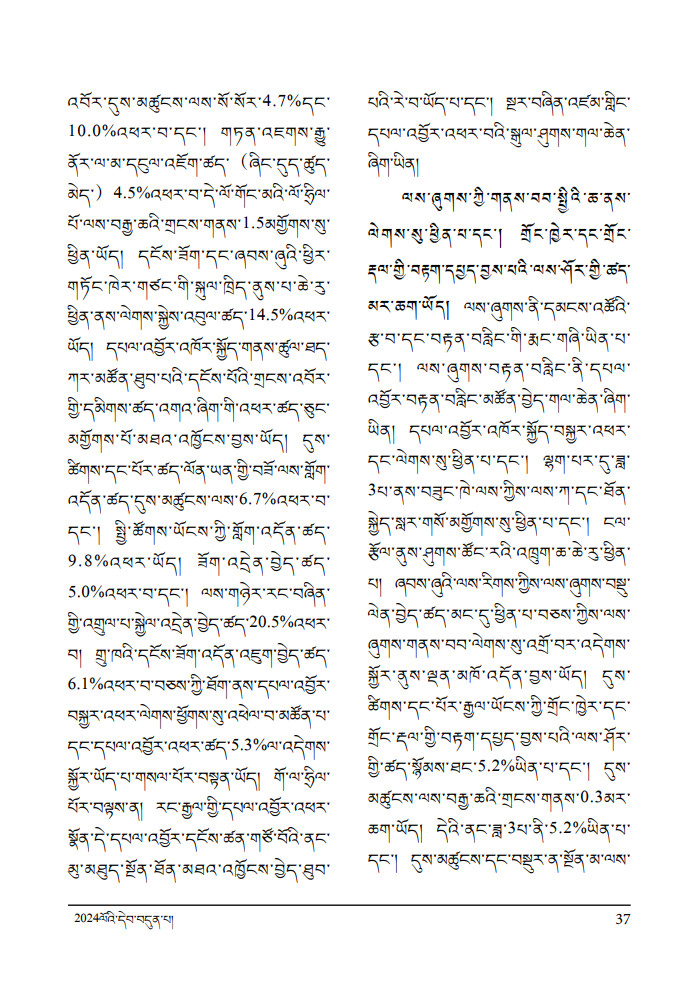 འབོར་དུས་མཚུངས་ལས་སོ་སོར་4.7%དང་
10.0%འཕར་བ་དང་། གཏན་འཇགས་རྒྱུ་
ནོར་ལ་མ་དངུལ་འཇོག་ཚད་（ཞིང་དུད་ཚུད་
མེད་）4.5%འཕར་བ་དེ་ལོ་གོང་མའི་ལོ་ཧྲིལ་
པོ་ལས་བརྒྱ་ཆའི་གྲངས་གནས་1.5མགྱོགས་སུ་
ཕྱིན་ཡོད། དངོས་ཟོག་དང་ཞབས་ཞུའི་ཕྱིར་
གཏོང་ཁེར་གཙང་གི་སྐུལ་ཁྲིད་ནུས་པ་ཆེ་རུ་
ཕྱིན་ནས་ལེགས་སྐྱེས་འབུལ་ཚད་14.5%འཕར་
ཡོད། དཔལ་འབྱོར་འཁོར་སྐྱོད་གནས་ཚུལ་ཐད་
ཀར་མཚོན་ཐུབ་པའི་དངོས་པོའི་གྲངས་འབོར་
གྱི་དམིགས་ཚད་འགའ་ཞིག་གི་འཕར་ཚད་ཅུང་
མགྱོགས་པོ་མཐའ་འཁྱོངས་བྱས་ཡོད། དུས་
ཚིགས་དང་པོར་ཚད་ལོན་ཡན་གྱི་བཟོ་ལས་གློག་
འདོན་ཚད་དུས་མཚུངས་ལས་6.7%འཕར་བ་
དང་། སྤྱི་ཚོགས་ཡོངས་ཀྱི་གློག་འདོན་ཚད་
9.8%འཕར་ཡོད། ཟོག་འདྲེན་བྱེད་ཚད་
5.0%འཕར་བ་དང་། ལས་གཉེར་རང་བཞིན་
གྱི་འགྲུལ་པ་སྐྱེལ་འདྲེན་བྱེད་ཚད་20.5%འཕར་
བ། གྲུ་ཁའི་དངོས་ཟོག་འདོན་འཇུག་བྱེད་ཚད་
6.1%འཕར་བ་བཅས་ཀྱི་ཐོག་ནས་དཔལ་འབྱོར་
བསྐྱར་འཕར་ལེགས་ཕྱོགས་སུ་འཕེལ་བ་མཚོན་པ་
དང་དཔལ་འབྱོར་འཕར་ཚད་5.3%ལ་འདེགས་
སྐྱོར་ཡོད་པ་གསལ་པོར་བསྟན་ཡོད། གོ་ལ་ཧྲིལ་
པོར་བལྟས་ན། རང་རྒྱལ་གྱི་དཔལ་འབྱོར་འཕར་
སྣོན་དེ་དཔལ་འབྱོར་དངོས་ཚན་གཙོ་བོའི་ནང་
མུ་མཐུད་སྔོན་ཐོན་མཐའ་འཁྱོངས་བྱེད་ཐུབ་
པའི་རེ་བ་ཡོད་པ་དང་། སྔར་བཞིན་འཛམ་གླིང་
དཔལ་འབྱོར་འཕར་བའི་སྒུལ་ཤུགས་གལ་ཆེན་
ཞིག་ཡིན།
ལས་ཞུགས་ཀྱི་གནས་བབ་སྤྱིའི་ཆ་ནས་
ལེགས་སུ་ཕྱིན་པ་དང་། གྲོང་ཁྱེར་དང་གྲོང་
རྡལ་གྱི་བརྟག་དཔྱད་བྱས་པའི་ལས་ཤོར་གྱི་ཚད་
མར་ཆག་ཡོད། ལས་ཞུགས་ནི་དམངས་འཚོའི་
རྩ་བ་དང་བརྟན་བླིང་གི་རྨང་གཞི་ཡིན་པ་
དང་། ལས་ཞུགས་བརྟན་བླིང་ནི་དཔལ་
འབྱོར་བརྟན་བླིང་མཚོན་བྱེད་གལ་ཆེན་ཞིག་
ཡིན། དཔལ་འབྱོར་འཁོར་སྐྱོད་བསྐྱར་འཕར་
དང་ལེགས་སུ་ཕྱིན་པ་དང་། ལྷག་པར་དུ་ཟླ་
3པ་ནས་བཟུང་ཁེ་ལས་ཀྱིས་ལས་ཀ་དང་ཐོན་
སྐྱེད་སླར་གསོ་མགྱོགས་སུ་ཕྱིན་པ་དང་། ངལ་
རྩོལ་ནུས་ཤུགས་ཚོང་རའི་འཁྲུག་ཆ་ཆེ་རུ་ཕྱིན་
པ། ཞབས་ཞུའི་ལས་རིགས་ཀྱིས་ལས་ཞུགས་བསྡུ་
ལེན་བྱེད་ཚད་མང་དུ་ཕྱིན་པ་བཅས་ཀྱིས་ལས་
ཞུགས་གནས་བབ་ལེགས་སུ་འགྲོ་བར་འདེགས་
སྐྱོར་ནུས་ལྡན་མཁོ་འདོན་བྱས་ཡོད། དུས་
ཚིགས་དང་པོར་རྒྱལ་ཡོངས་ཀྱི་གྲོང་ཁྱེར་དང་
གྲོང་རྡལ་གྱི་བརྟག་དཔྱད་བྱས་པའི་ལས་ཤོར་
གྱི་ཚད་སྙོམས་ཐང་5.2%ཡིན་པ་དང་། དུས་
མཚུངས་ལས་བརྒྱ་ཆའི་གྲངས་གནས་0.3མར་
ཆག་ཡོད། དེའི་ནང་ཟླ་3པ་ནི་5.2%ཡིན་པ་
དང་། དུས་མཚུངས་དང་བསྡུར་ན་སྔོན་མ་ལས་
2024ལོའི་དེབ་བདུན་པ།
37